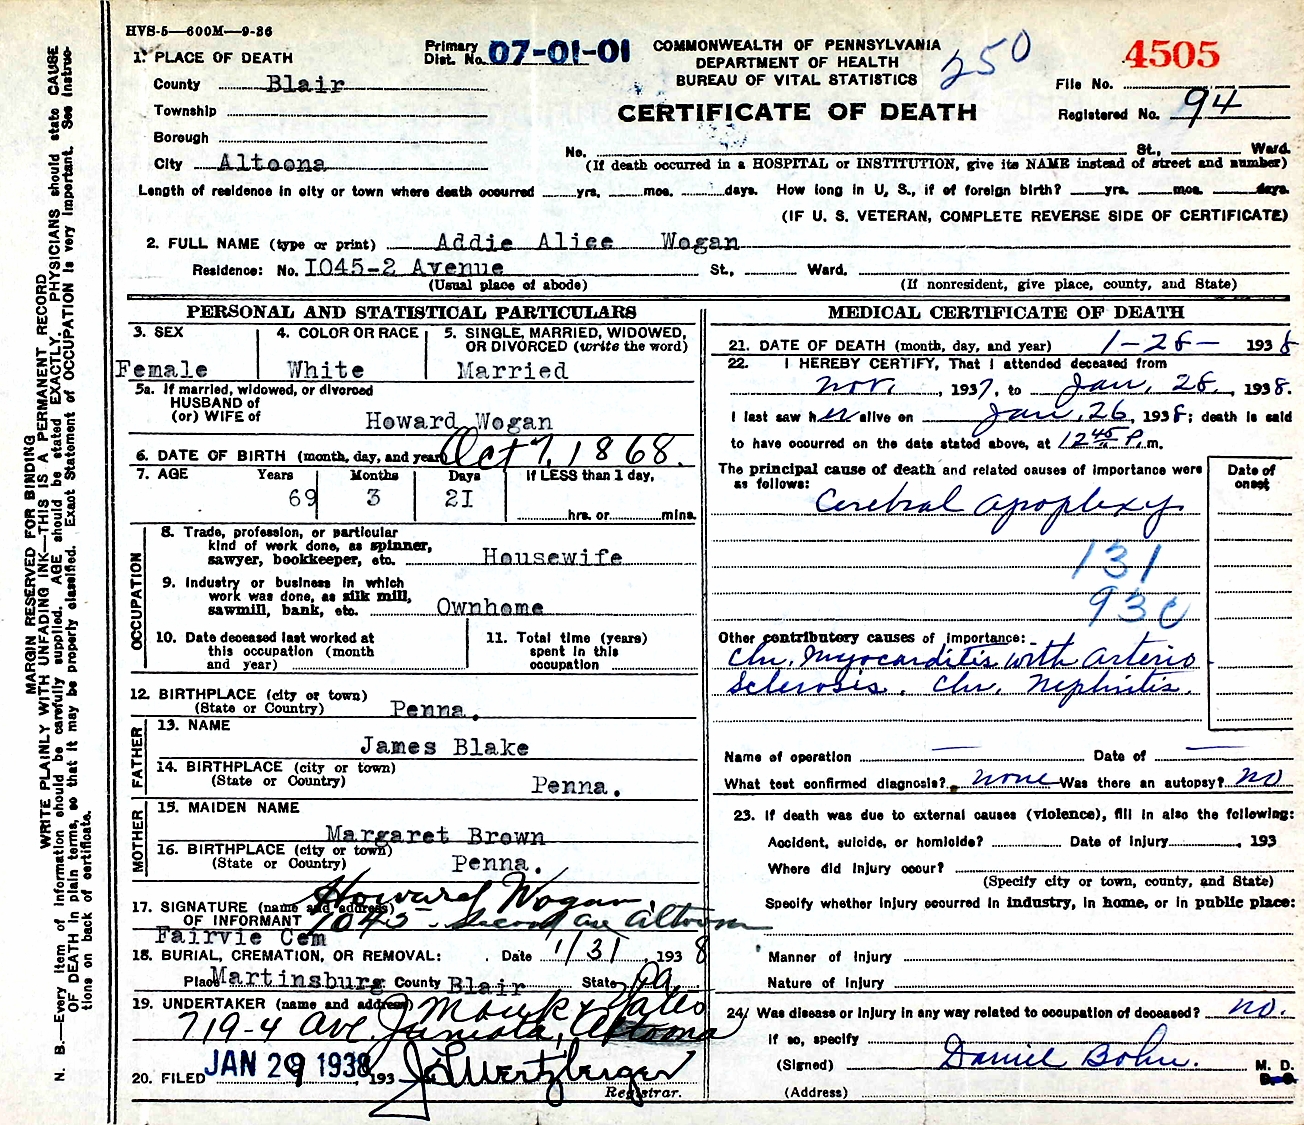 HVS-5—600M—9-36
1. PLACE OF DEATH
County Blair
Township
Borough
City Altoona
Primary Dist. No. 07-01-01
COMMONWEALTH OF PENNSYLVANIA
DEPARTMENT OF HEALTH
BUREAU OF VITAL STATISTICS
CERTIFICATE OF DEATH
250
4505
File No.
Registered No. 94
No. St., Ward.
(If death occurred in a HOSPITAL or INSTITUTION, give its NAME instead of street and number)
Length of residence in city or town where death occurred yrs. mos. days. How long in U, S., if of foreign birth? yrs. mos. days.
(IF U. S. VETERAN, COMPLETE REVERSE SIDE OF CERTIFICATE)
2. FULL NAME (type or print) Addie Alice Wogan
Residence: No. I045-2 Avenue St., Ward.
(Usual place of abode) (If nonresident, give place, county, and State)
PERSONAL AND STATISTICAL PARTICULARS
3. SEX 4. COLOR OR RACE 5. SINGLE, MARRIED, WIDOWED, OR DIVORCED (write the word)
Female White Married
5a. If married, widowed, or divorced
HUSBAND of
(or) WIFE of Howard Wogan
6. DATE OF BIRTH (month, day, and year) Oct 7, 1868.
7. AGE Years Months Days If LESS than 1 day,
69 3 2I
hrs. or mins.
OCCUPATION
8. Trade, profession, or particular
kind of work done, as spinner,
sawyer, bookkeeper, etc. Housewife
9. Industry or business in which
work was done, as silk mill,
sawmill, bank, etc. Ownhome
10. Date deceased last worked at
this occupation (month
and year)
11. Total time (years)
spent in this
occupation
12. BIRTHPLACE (city or town)
(State or Country) Penna.
FATHER
13. NAME
James Blake
14. BIRTHPLACE (city or town)
(State or Country) Penna.
MOTHER
15. MAIDEN NAME
Margaret Brown
16. BIRTHPLACE (city or town)
(State or Country) Penna.
Howard Wogan
17. SIGNATURE (name and address)
OF INFORMANT 1045 - Second ave altoona
Fairvie Cem
18. BURIAL, CREMATION, OR REMOVAL: Date 1/31, 1938
Place Martinsburg County Blair State Pa.
19. UNDERTAKER (name and address)
719-4 Ave. Juniata, Altoona
20. FILED JAN 29 1938, 193
Registrar.
MEDICAL CERTIFICATE OF DEATH
21. DATE OF DEATH (month, day, and year) 1-28- 1938
22. I HEREBY CERTIFY, That I attended deceased from
Nov., 1937, to Jan, 28, 1938.
I last saw her alive on Jan, 26, 1938; death is said
to have occurred on the date stated above, at 12 45 P.m.
The principal cause of death and related causes of importance were
as follows:
Date of onset
Cerebral apoplexy
131
93c
Other contributory causes of importance:
Chr. Myocarditis with arterio
sclerosis. Chr. Nephritis.
Name of operation — Date of —
What test confirmed diagnosis? none Was there an autopsy? no
23. If death was due to external causes (violence), fill in also the following:
Accident, suicide, or homicide? Date of injury, 193
Where did injury occur?
(Specify city or town, county, and State)
Specify whether injury occurred in industry, in home, or in public place:
Manner of injury
Nature of injury
24. Was disease or injury in any way related to occupation of deceased? no.
If so, specify
(Signed) Daniel Bohn. M. D.
D.O.
(Address)
MARGIN RESERVED FOR BINDING
WRITE PLAINLY WITH UNFADING INK—THIS IS A PERMANENT RECORD
N. B.—Every item of information should be carefully supplied. AGE should be stated EXACTLY. PHYSICIANS should state CAUSE
OF DEATH in plain terms, so that it may be properly classified. Exact Statement of OCCUPATION is very important. See instruc-
tions on back of certificate.